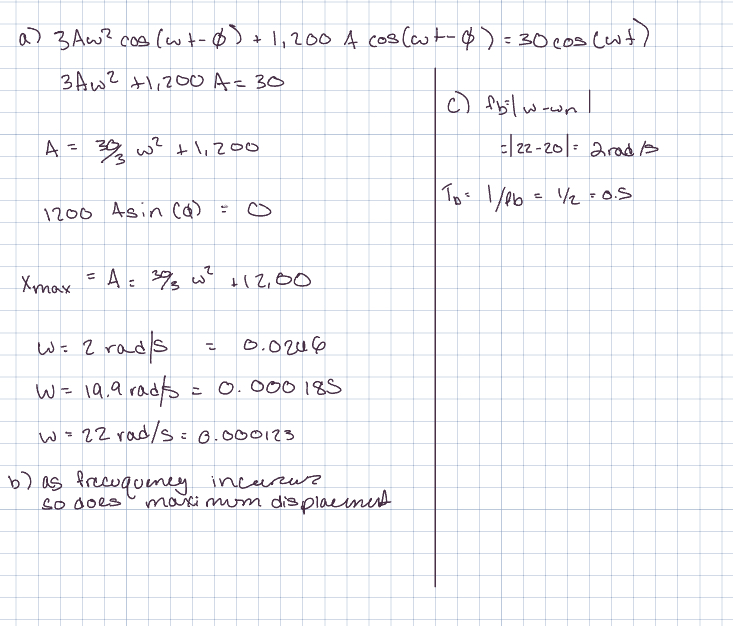 a) 3Aω² cos(ωt-ϕ) + 1,200 A cos(ωt-ϕ) = 30 cos(ωt)
3Aω² + 1,200 A = 30
A = 30/3 ω² + 1,200
1200 A sin(ϕ) = 0
Xmax = A = 30/3 ω² + 12,00
ω = 2 rad/s = 0.0246
ω = 19.9 rad/s = 0.000185
ω = 22 rad/s = 0.000123
b) as
so does maximum displacement
c) fb = |ω-ωn|
= |22-20| = 2 rad/s
Tb = 1/fb = 1/2 = 0.5